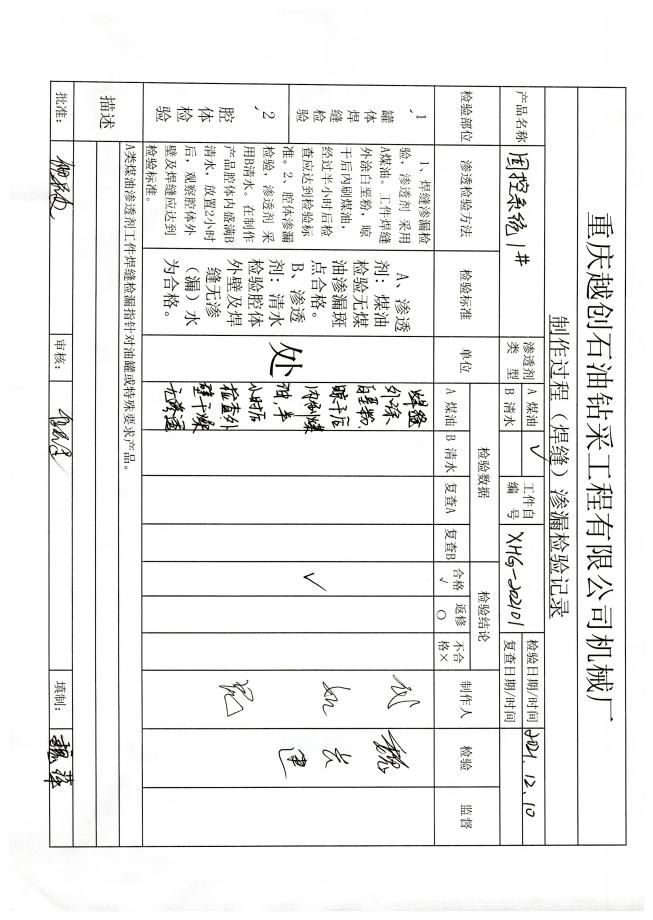 重庆越创石油钻采工程有限公司机械厂
制作过程（焊缝）渗漏检验记录
产品名称
固控系统1#
渗透剂
类 型
A 煤油
√
B 清水
工件自
编 号
XHG-202101
检验日期/时间
2021.12.10
复查日期/时间
检验部位
渗透检验方法
检验标准
单位
检验数据
检验结论
制作人
检验
监督
A 煤油
B 清水
复查A
复查B
合格
√
返修
○
不合
格×
1、
罐
体
焊
缝
检
验
2、
腔
体
检
验
1、焊缝渗漏检
验，渗透剂 采用
A煤油。工件焊缝
外涂白垩粉，晾
干后内刷煤油，
经过半小时后检
查应达到检验标
准。2、腔体渗漏
检验，渗透剂 采
用B清水。在制作
产品腔体内盛满B
清水，放置2小时
后，观察腔体外
壁及焊缝应达到
检验标准。
A、渗透
剂：煤油
检验无煤
油渗漏斑
点合格。
B、渗透
剂：清水
检验腔体
外壁及焊
缝无渗
（漏）水
为合格。
处
焊缝
外涂
白垩粉
晾干后
内刷煤
油，半
小时后
检查外
壁干燥
无渗透
√
描述
A类煤油渗透剂工件焊缝检漏指针对油罐或特殊要求产品。
批准：
审核：
填制：
魏萍